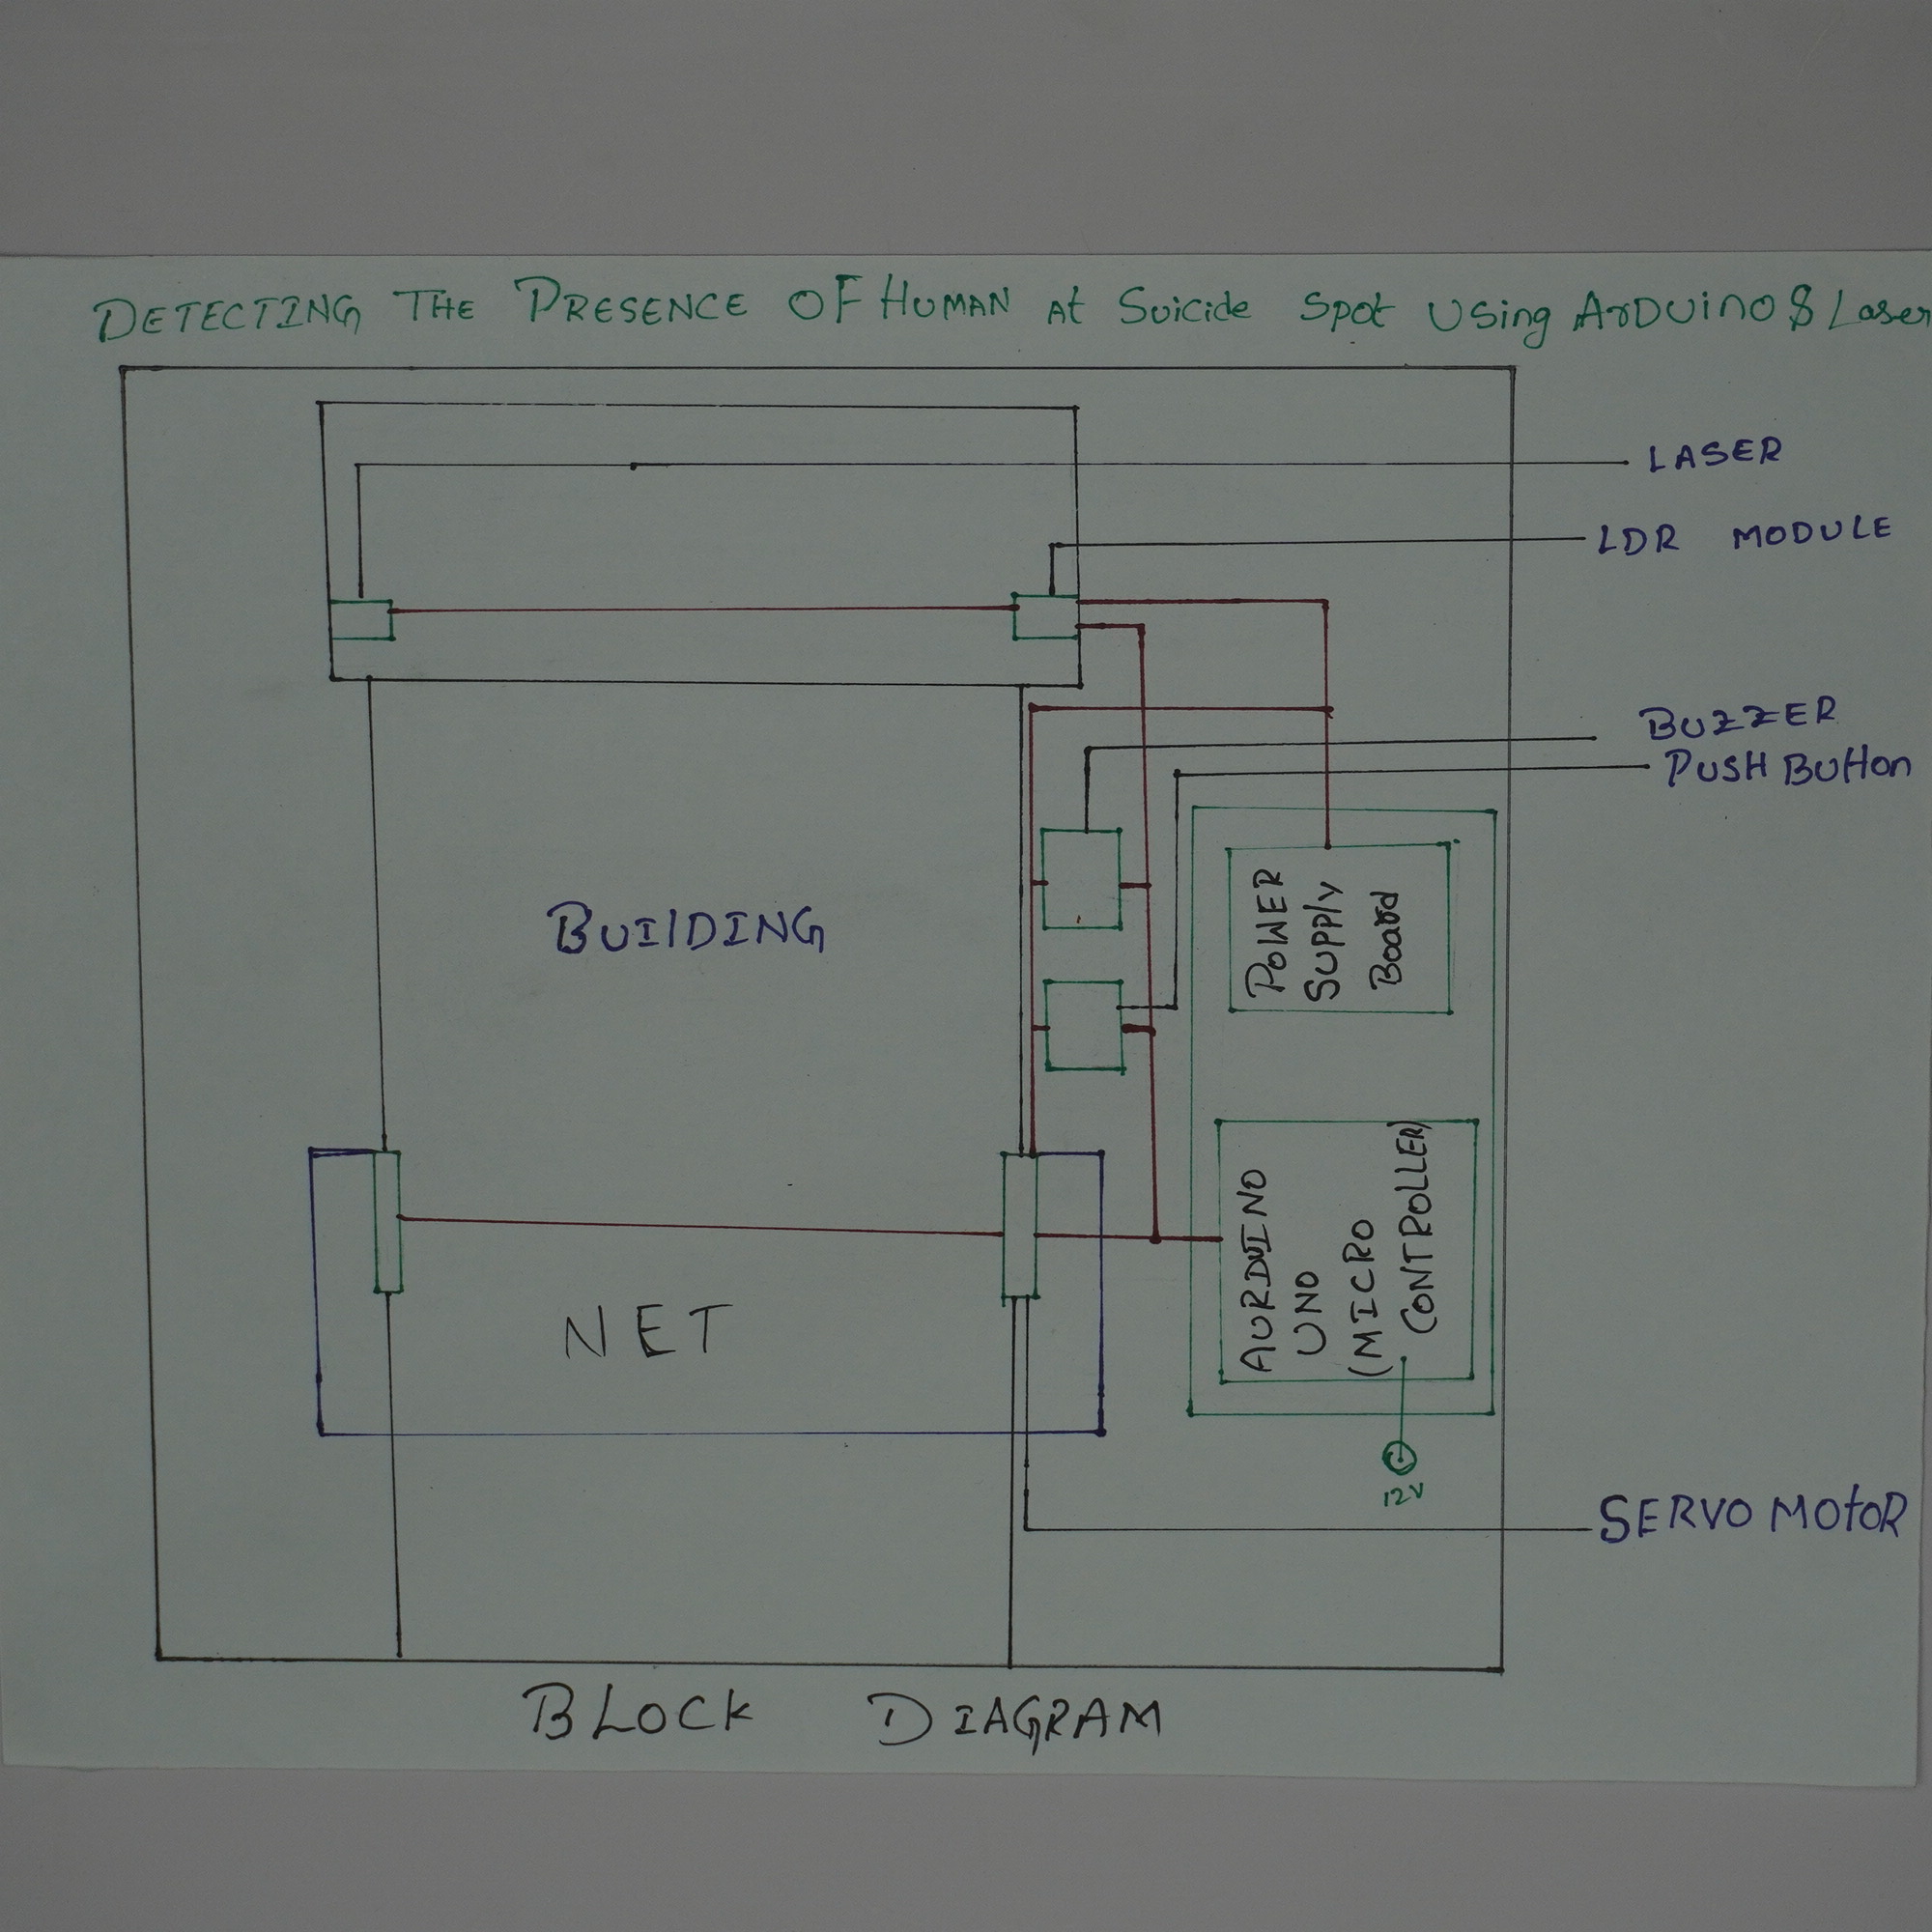 DETECTING THE PRESENCE OF HUMAN At Suicide Spot Using ArDUino & Laser
LASER
LDR MODULE
BUZZER
PUSH BUtton
POWER
SUPPly
Board
BUIlDING
AURDUINO
UNO
(MICRO
CONTROLLER)
NET
12V
SERVO MOtOR
BLOCK DIAGRAM